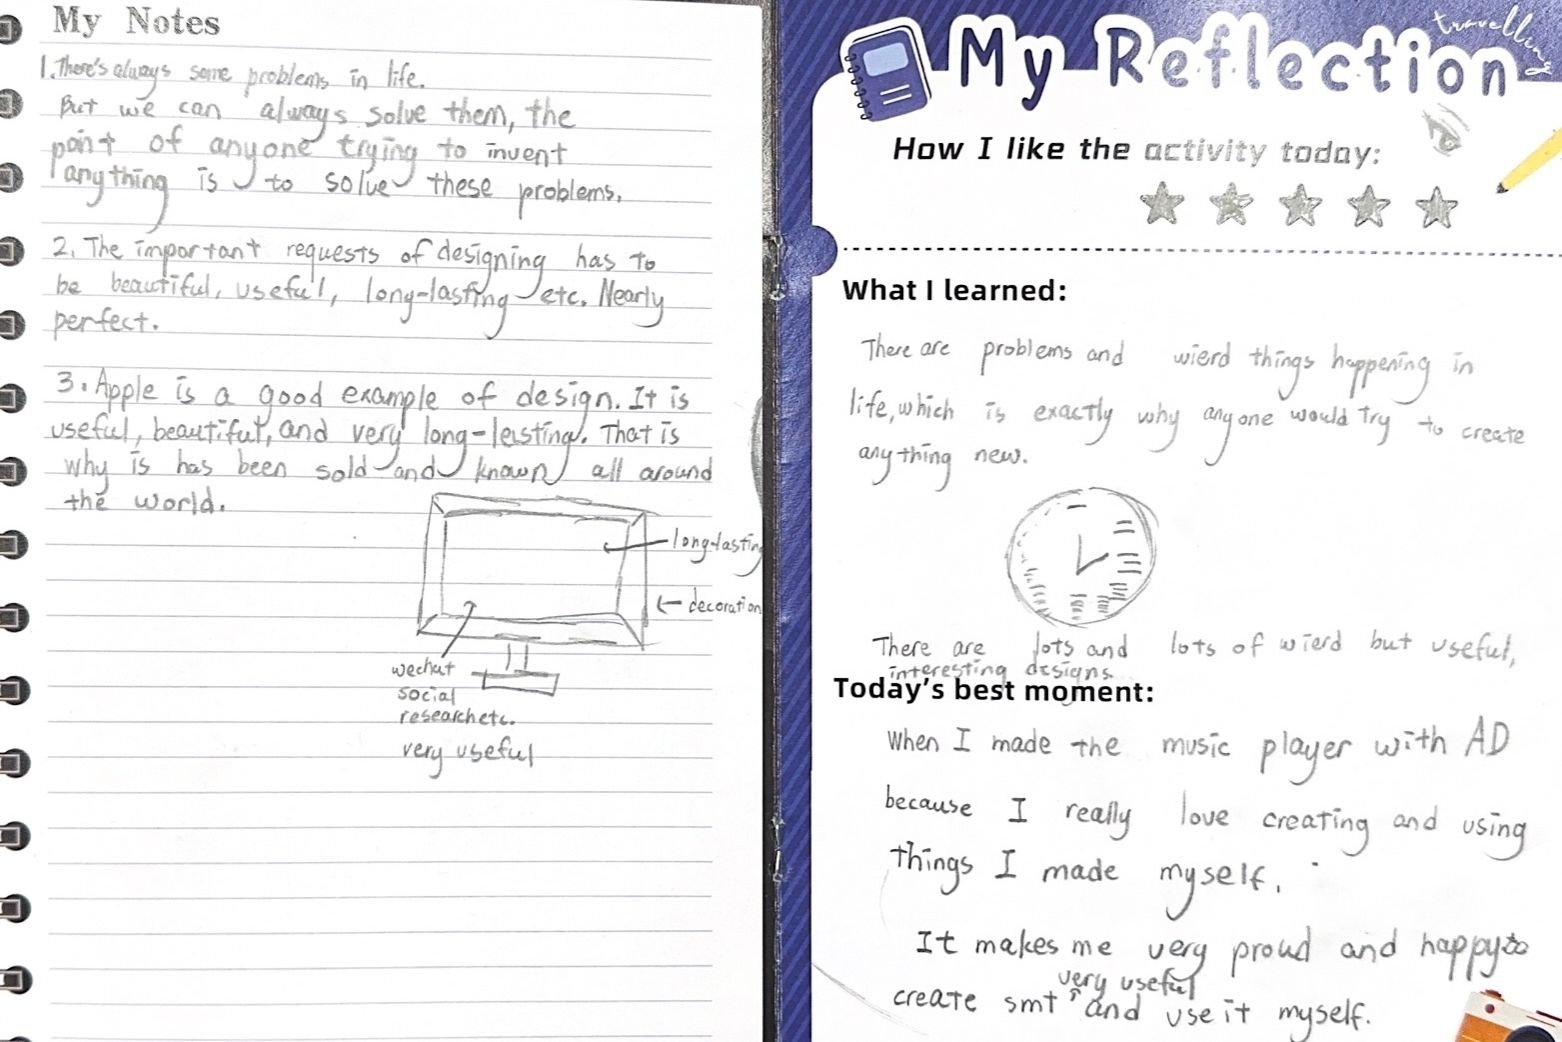 My Notes
1. There's always some problems in life.
But we can always solve them, the
point of anyone trying to invent
anything is to solve these problems.
2. The important requests of designing has to
be beautiful, useful, long-lasting etc. Nearly
perfect.
3. Apple is a good example of design. It is
useful, beautiful, and very long-leisting. That is
why is has been sold and known all around
the world.
long-lasting
decoration
wechat
social
research etc.
very useful
travelling
My Reflection
How I like the activity today:
What I learned:
There are problems and wierd things happening in
life, which is exactly why anyone would try to create
anything new.
There are lots and lots of wierd but useful,
interesting designs.
Today's best moment:
When I made the music player with AD
because I really love creating and using
things I made myself.
It makes me very proud and happy to
very useful
create smt and use it myself.